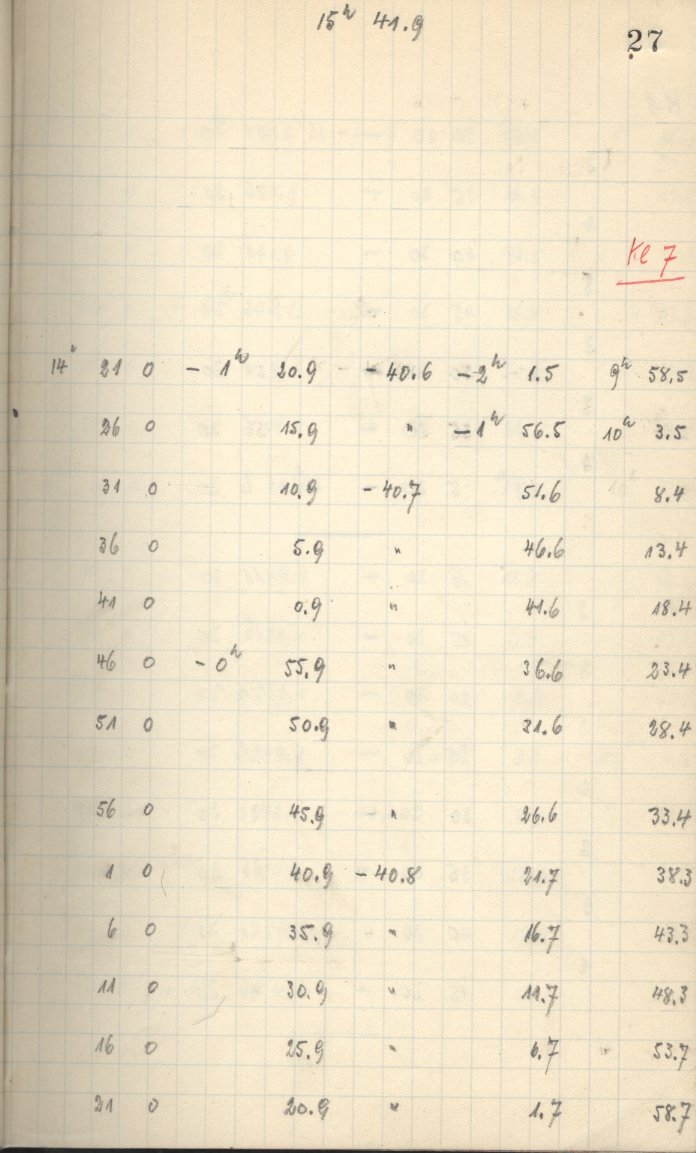 15ʰ 41.9
27
Kl 7
14ʰ 21 0 - 1ʰ 20.9 -40.6 -2ʰ 1.5 9ʰ 58.5
26 0 15.9 " -1ʰ 56.5 10ʰ 3.5
31 0 10.9 -40.7 51.6 8.4
36 0 5.9 " 46.6 13.4
41 0 0.9 " 41.6 18.4
46 0 - 0ʰ 55.9 " 36.6 23.4
51 0 50.9 " 31.6 28.4
56 0 45.9 " 26.6 33.4
1 0 40.9 -40.8 21.7 38.3
6 0 35.9 " 16.7 43.3
11 0 30.9 " 11.7 48.3
16 0 25.9 " 6.7 53.7
21 0 20.9 " 1.7 58.7